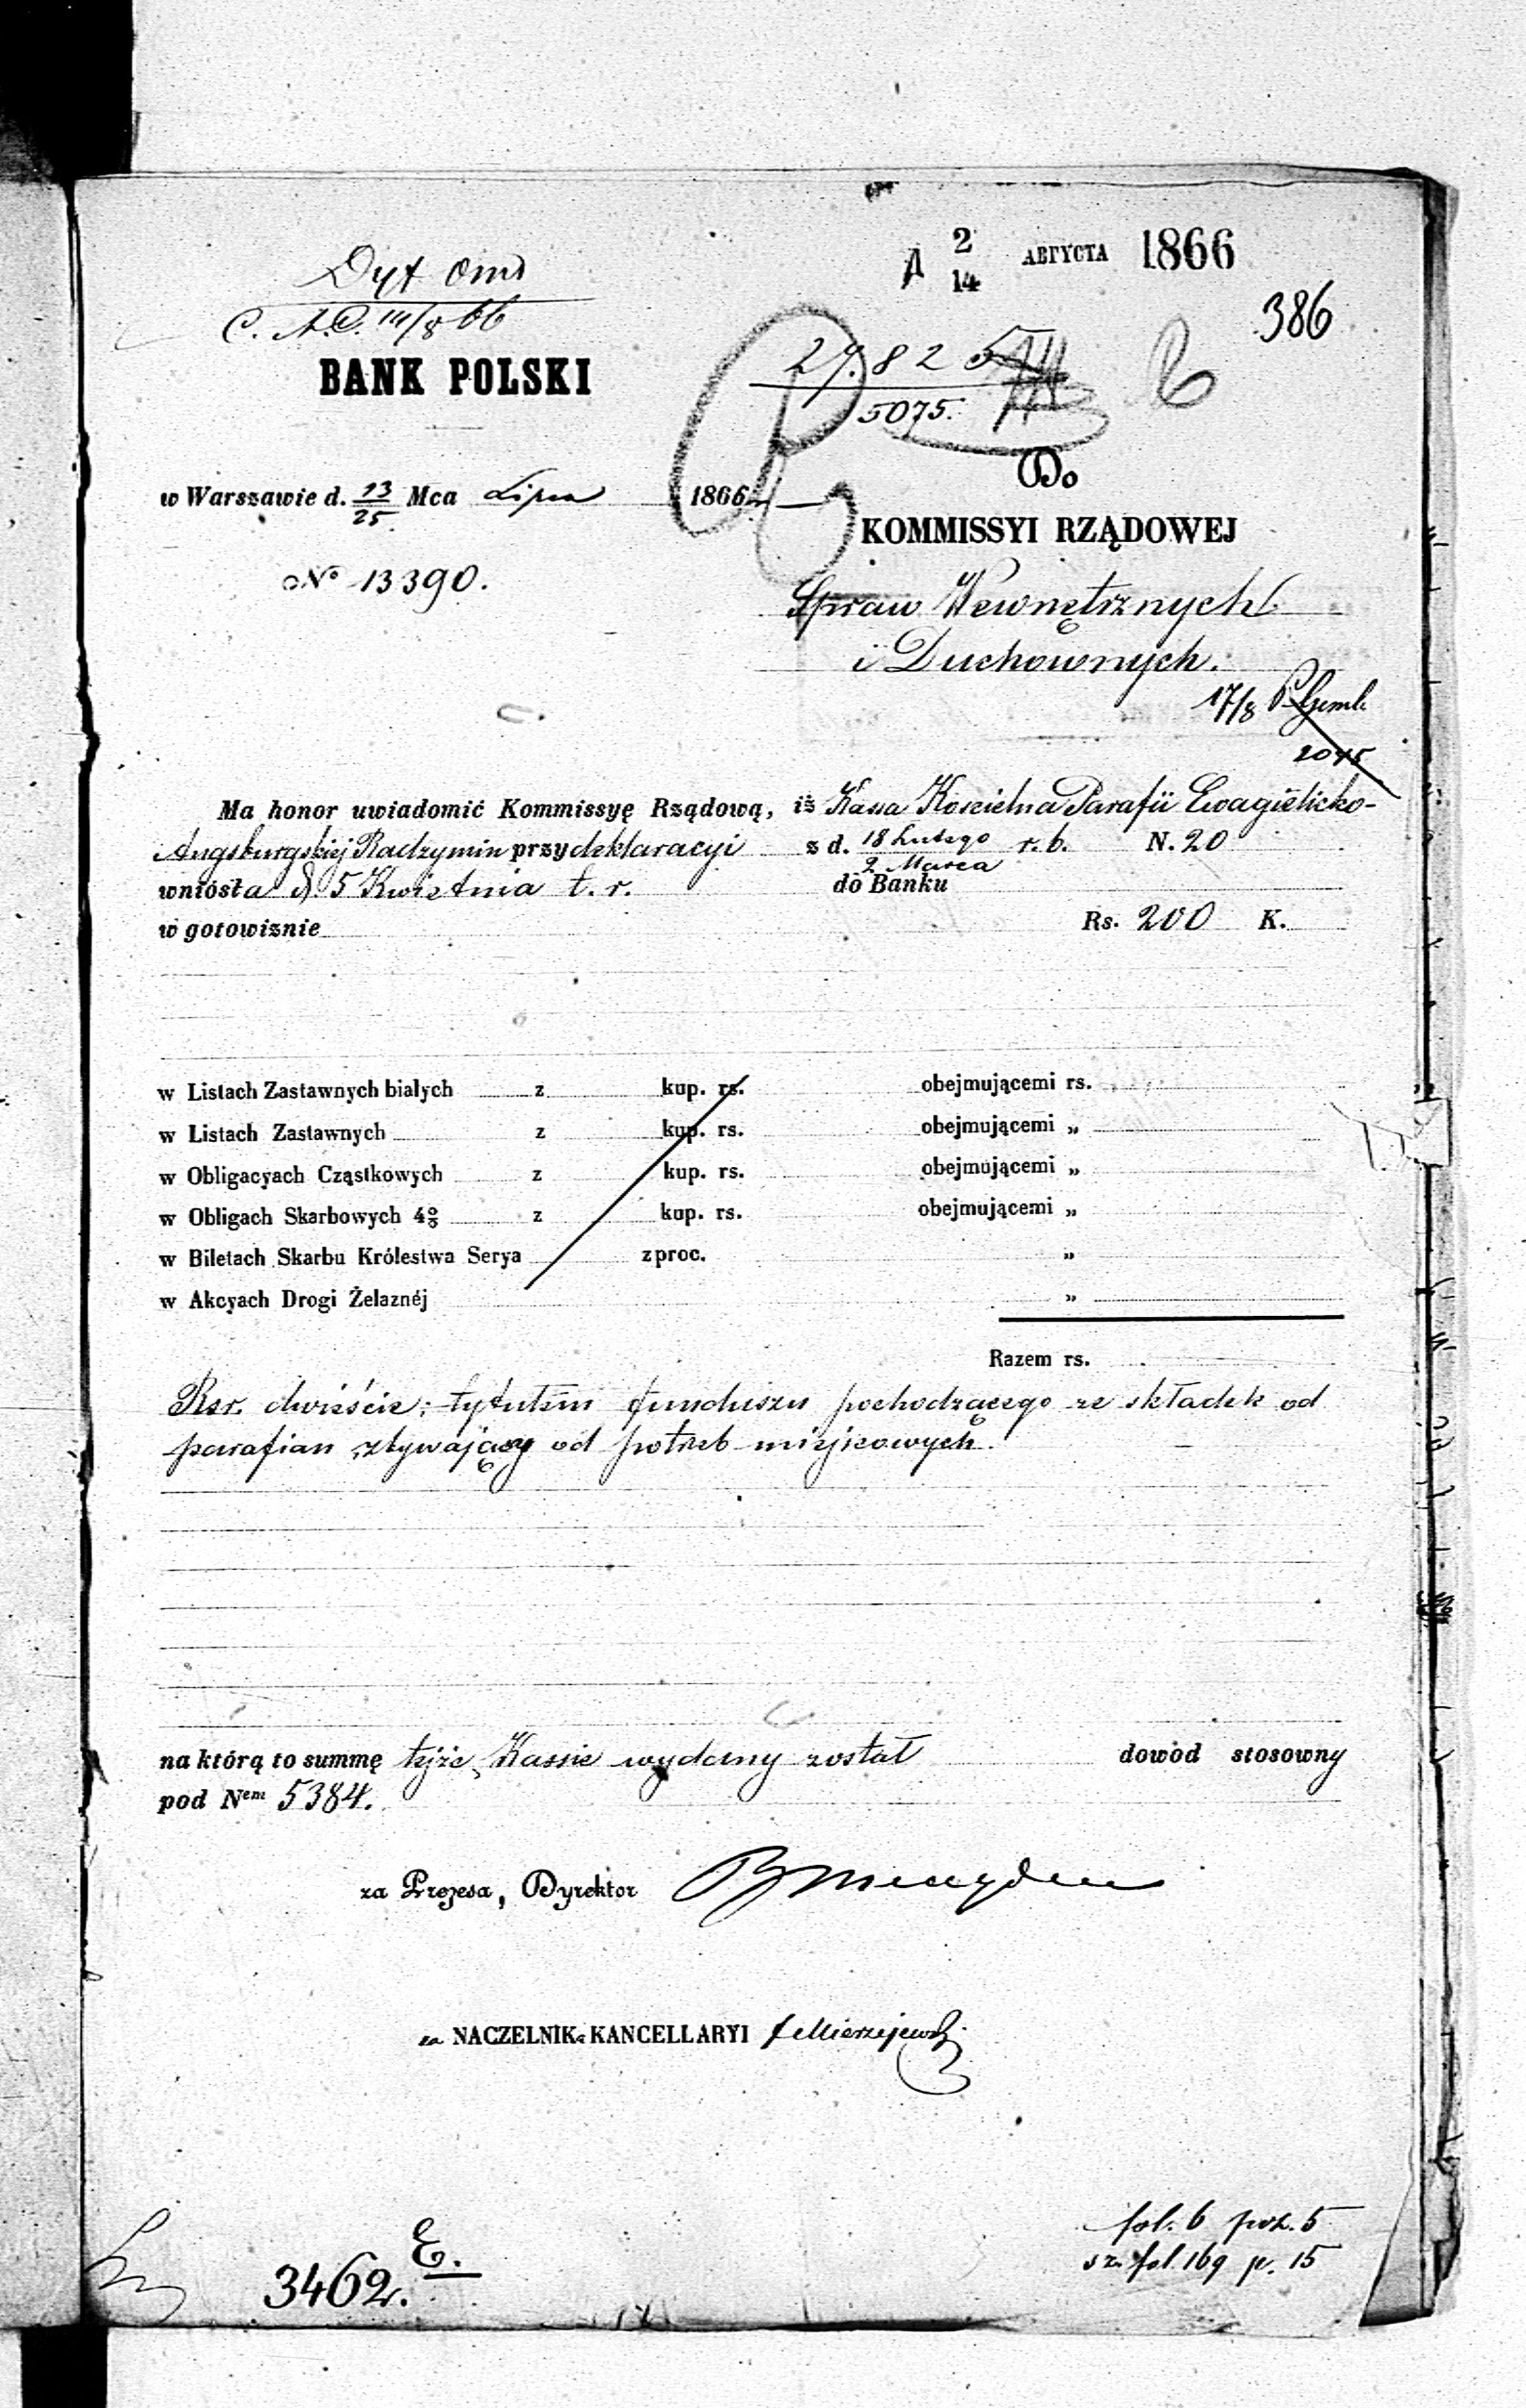 2/14 АВГУСТА 1866
386
BANK POLSKI
5075.
Do
w Warszawie d. 13/25 Mca Lipca 1866
KOMMISSYI RZĄDOWEJ
No 13390.
Spraw Wewnętrznych
i Duchownych.
17/8
Ma honor uwiadomić Kommissyę Rządową, iż Kassa Kościelna Parafii Ewagielicko-
Augsburgskiej Radzymin przy deklaracyi z d. 18 Lutego / 2 Marca r. b. N. 20
wniosła d. 5 Kwietnia t. r. do Banku
w gotowiznie Rs. 200 K.
w Listach Zastawnych białych z kup. rs. obejmującemi rs.
w Listach Zastawnych z kup. rs. obejmującemi „
w Obligacyach Cząstkowych z kup. rs. obejmującemi „
w Obligach Skarbowych 4% z kup. rs. obejmującemi „
w Biletach Skarbu Królestwa Serya z proc. „
w Akcyach Drogi Żelaznéj „
Razem rs.
Rsr. dwieście; tytułem funduszu pochodzącego ze składek od
parafian zbywający od potrzeb miejscowych.
na którą to summę tejże Kassie wydany został dowód stosowny
pod Nem 5384.
za Prezesa, Dyrektor
za NACZELNIKa KANCELLARYI Mierzejewski
fol. 6 poz. 5
E.
sz. fol. 169 p. 15
3462.